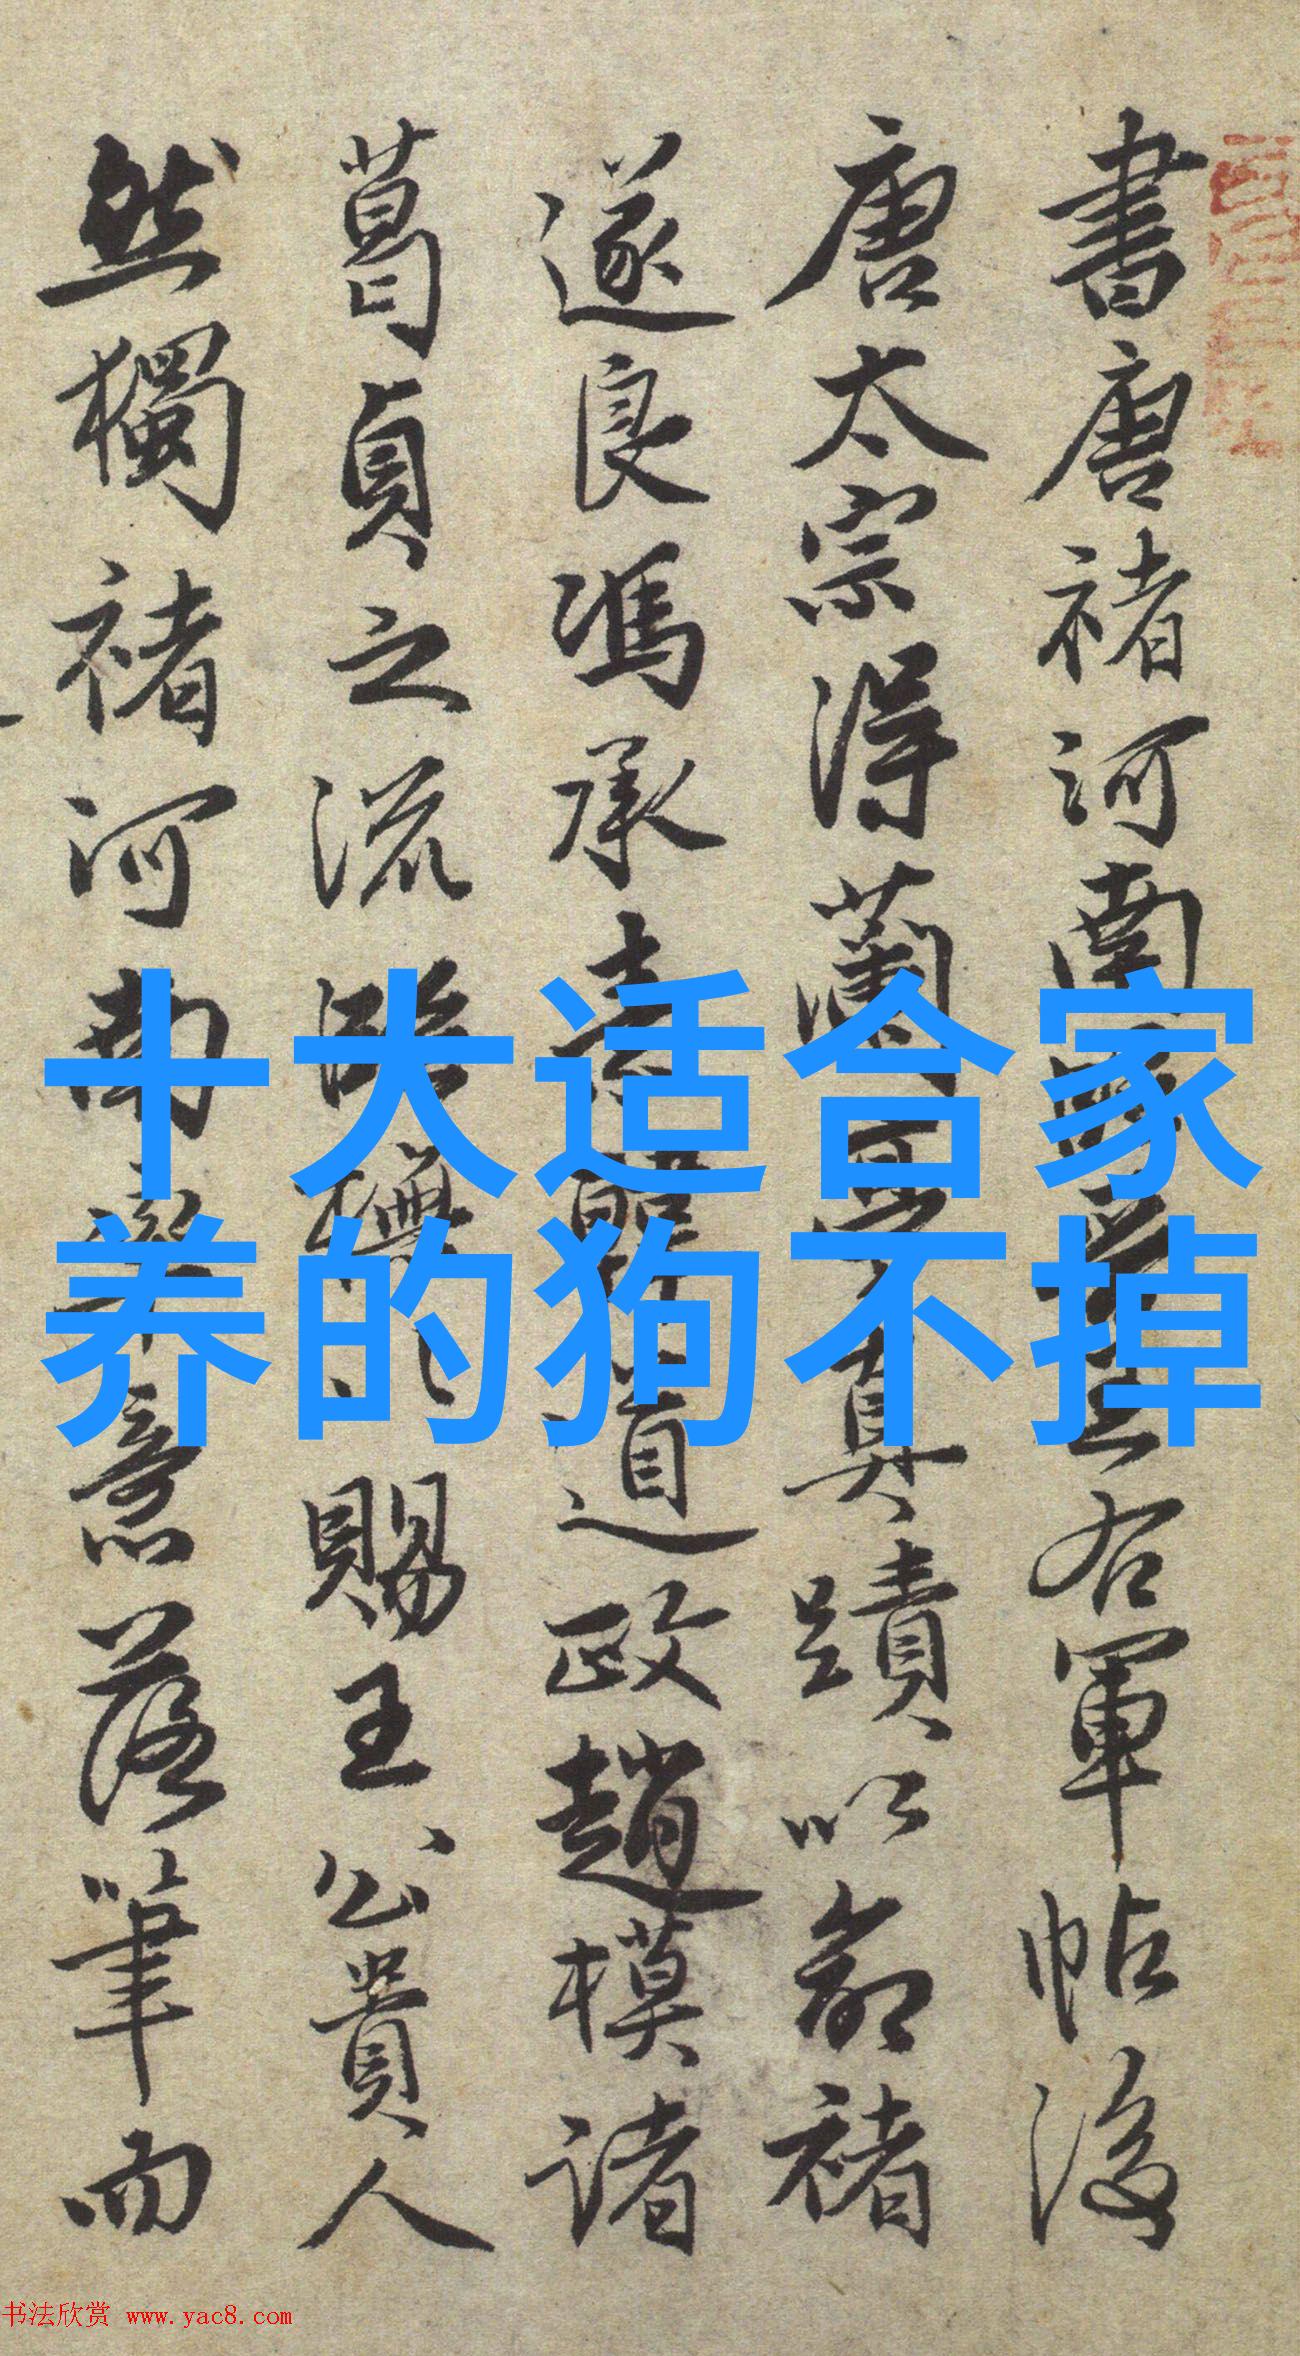 書唐褚河南
右軍帖後
唐太宗得蘭
真蹟以命褚
遂良馮承素
道政趙模諸
葛貞之流
賜王公貴人
然獨褚河南
意落筆而
十大适合家
养的狗不掉
书法欣赏 www.yac8.com